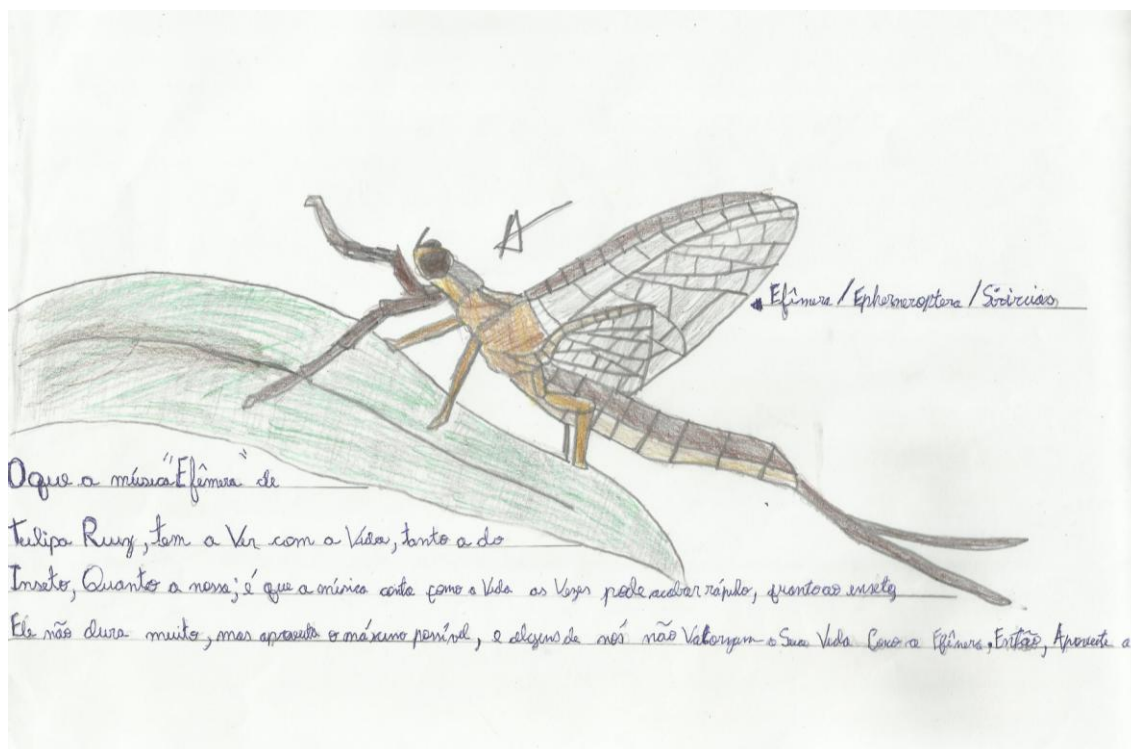 Efêmera / Ephemeroptera / Siriruias
Oque a música "Efêmera" de
Tulipa Ruiz, tem a Ver com a Vida, tanto a do
Inseto, Quanto a nossa; é que a música conta como a Vida as Vezes pode acabar rápido, quanto ao enseto,
Ele não dura muito, mas aproveita o máximo possível, e alguns de nós não Valorizam a Sua Vida Como a Efêmera, Então, Aproveite a